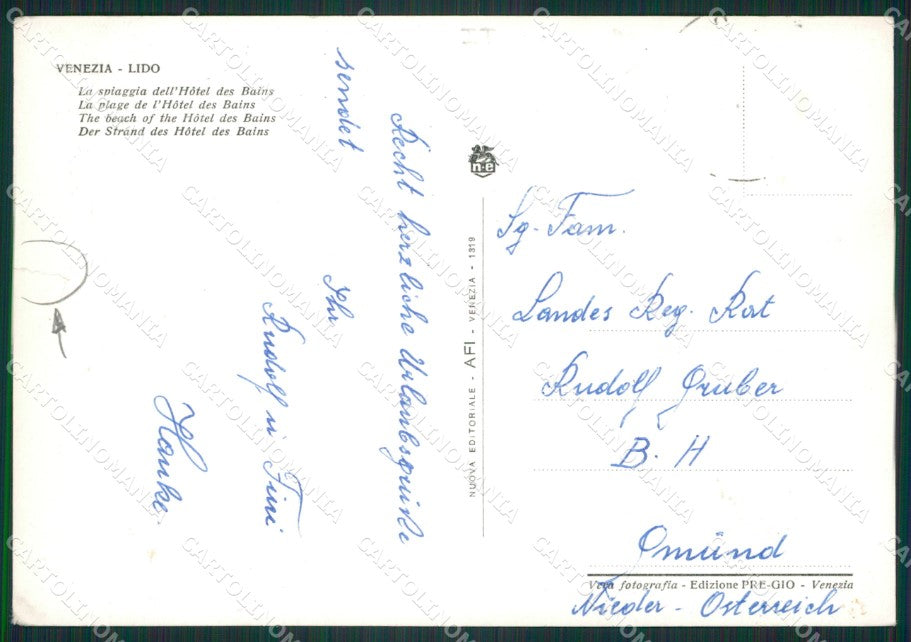 VENEZIA - LIDO
La spiaggia dell'Hôtel des Bains
La plage de l'Hôtel des Bains
The beach of the Hôtel des Bains
Der Strand des Hôtel des Bains
Recht herzliche Urlaubsgrüße
sendet
Ihr
Rudolf u Fini
Hanke.
n.e
NUOVA EDITORIALE - AFI - VENEZIA - 1319
Sg. Fam.
Landes Reg. Rat
Rudolf Gruber
B. H
Gmünd
Nieder-Österreich
Vera fotografia - Edizione PRE-GIO - Venezia
CARTOLINOMANIA